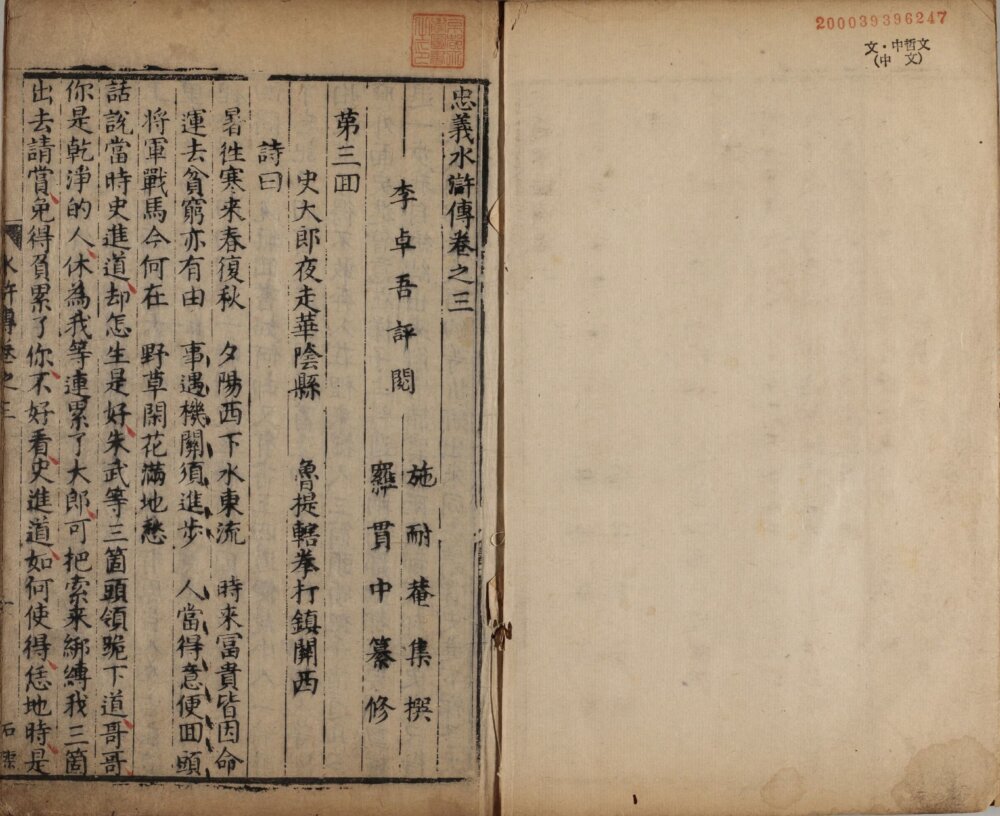 200039396247
文・中哲文
(中文)
忠義水滸傳卷之三
李卓吾評閱
施耐菴集撰
羅貫中纂修
第三回
史大郎夜走華陰縣 魯提轄拳打鎮關西
詩曰
暑往寒来春復秋 夕陽西下水東流 時來富貴皆因命
運去貧窮亦有由 事遇機關須進步 人當得意便回頭
將軍戰馬今何在 野草閑花滿地愁
話説當時史進道却怎生是好朱武等三箇頭領跪下道哥哥
你是乾淨的人休為我等連累了大郎可把索来綁縛我三箇
出去請賞免得負累了你不好看史進道如何使得恁地時是
水滸傳卷之三
一